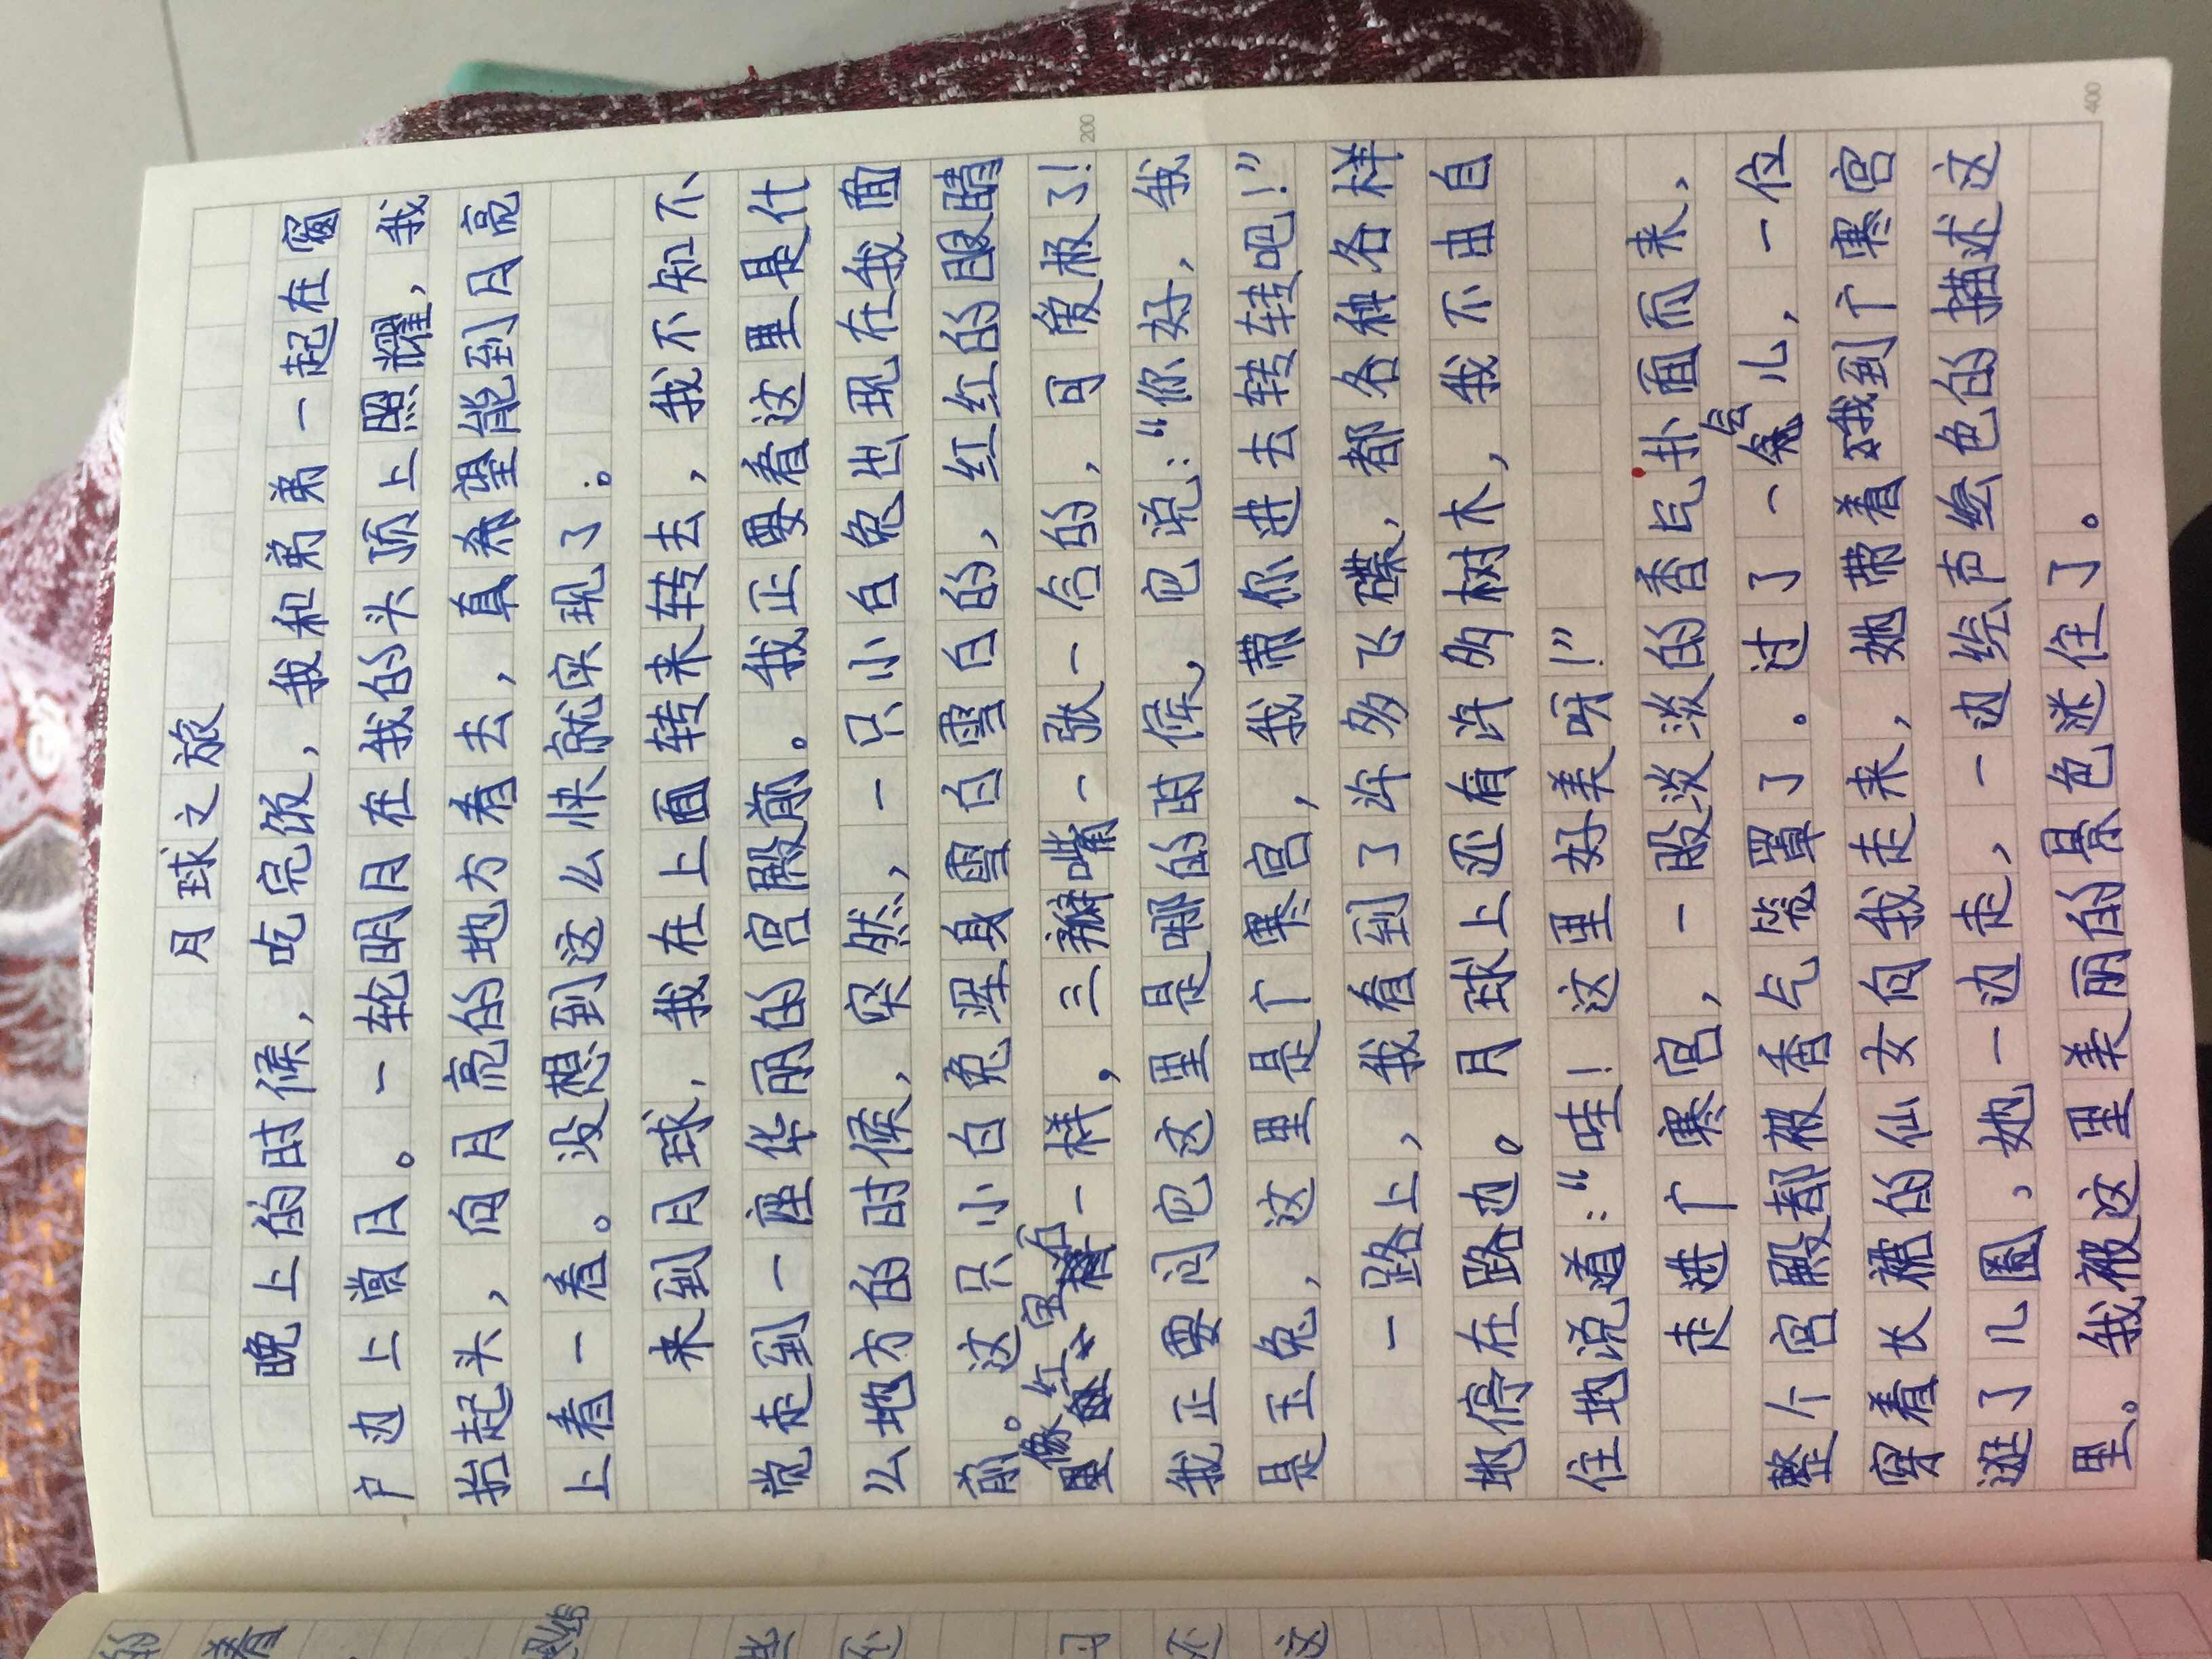 月球之旅
晚上的时候，吃完饭，我和弟弟一起在窗
户边上赏月。一轮明月在我的头顶上照耀，我
抬起头，向月亮的地方看去，真希望能到月亮
上看一看。没想到这么快就实现了。
来到月球，我在上面转来转去，我不知不
觉走到一座华丽的宫殿前。我正要看这里是什
么地方的时候，突然，一只小白兔出现在我面
前。这只小白兔浑身雪白雪白的，红红的眼睛
像红宝石一样，三瓣嘴一张一合的，可爱极了！
我正要问它这里是哪的时候，它说：“你好，我
是玉兔，这里是广寒宫，我带你进去转转吧！”
一路上，我看到了许多飞碟，都各种各样
地停在路边。月球上还有许多树木，我不由自
住地说道：“哇！这里好美呀！”
走进广寒宫，一股淡淡的香气扑面而来，
整个宫殿都被香气笼罩了。过了一会儿，一位
穿着长裙的仙女向我走来，她带着我到广寒宫
逛了几圈，她一边走，一边绘声绘色的描述这
里。我被这里美丽的景色迷住了。
200
400